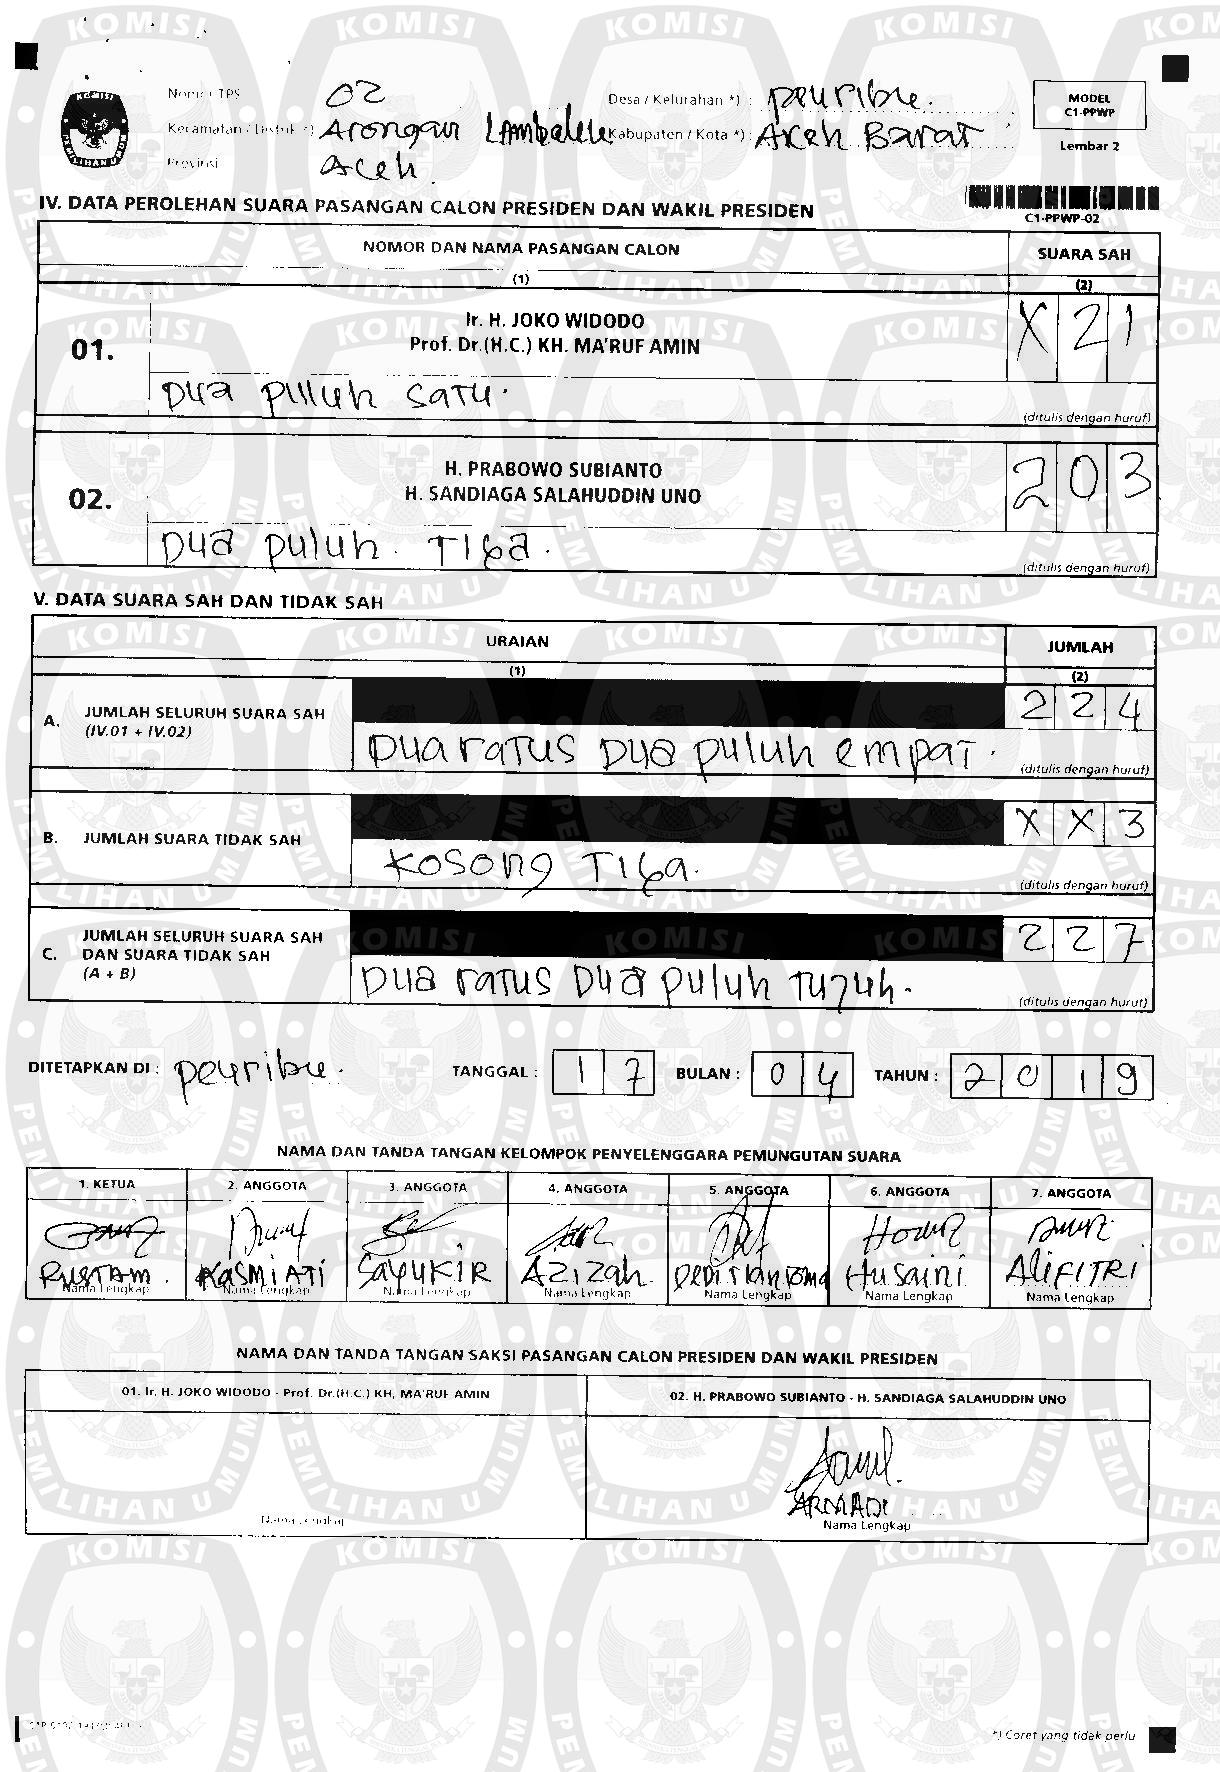 Nomor TPS 02 Desa / Kelurahan *) : peuribu.
Kecamatan / Distrik *) Arongan Lambalek Kabupaten / Kota *) : Aceh Barat
Provinsi Aceh.
MODEL
C1-PPWP
Lembar 2
IV. DATA PEROLEHAN SUARA PASANGAN CALON PRESIDEN DAN WAKIL PRESIDEN
C1-PPWP-02
NOMOR DAN NAMA PASANGAN CALON SUARA SAH
(1) (2)
01. Ir. H. JOKO WIDODO
Prof. Dr.(H.C.) KH. MA'RUF AMIN X 2 1
Dua puluh satu.
(ditulis dengan huruf)
02. H. PRABOWO SUBIANTO
H. SANDIAGA SALAHUDDIN UNO 2 0 3
Dua puluh. Tiga.
(ditulis dengan huruf)
V. DATA SUARA SAH DAN TIDAK SAH
URAIAN JUMLAH
(1) (2)
A. JUMLAH SELURUH SUARA SAH
(IV.01 + IV.02) 2 2 4
Dua ratus Dua puluh empat.
(ditulis dengan huruf)
B. JUMLAH SUARA TIDAK SAH X X 3
Kosong Tiga.
(ditulis dengan huruf)
C. JUMLAH SELURUH SUARA SAH
DAN SUARA TIDAK SAH
(A + B) 2 2 7
Dua ratus Dua puluh Tujuh.
(ditulis dengan huruf)
DITETAPKAN DI : peuribu. TANGGAL : 1 7 BULAN : 0 4 TAHUN : 2 0 1 9
NAMA DAN TANDA TANGAN KELOMPOK PENYELENGGARA PEMUNGUTAN SUARA
1. KETUA 2. ANGGOTA 3. ANGGOTA 4. ANGGOTA 5. ANGGOTA 6. ANGGOTA 7. ANGGOTA
RUSTAM. KASMIATI SAYUKIR AZIZah. Husaini ALIFITRI
Nama Lengkap Nama Lengkap Nama Lengkap Nama Lengkap Nama Lengkap Nama Lengkap Nama Lengkap
NAMA DAN TANDA TANGAN SAKSI PASANGAN CALON PRESIDEN DAN WAKIL PRESIDEN
01. Ir. H. JOKO WIDODO - Prof. Dr.(H.C.) KH. MA'RUF AMIN 02. H. PRABOWO SUBIANTO - H. SANDIAGA SALAHUDDIN UNO
ARMADI
Nama Lengkap Nama Lengkap
*) Coret yang tidak perlu